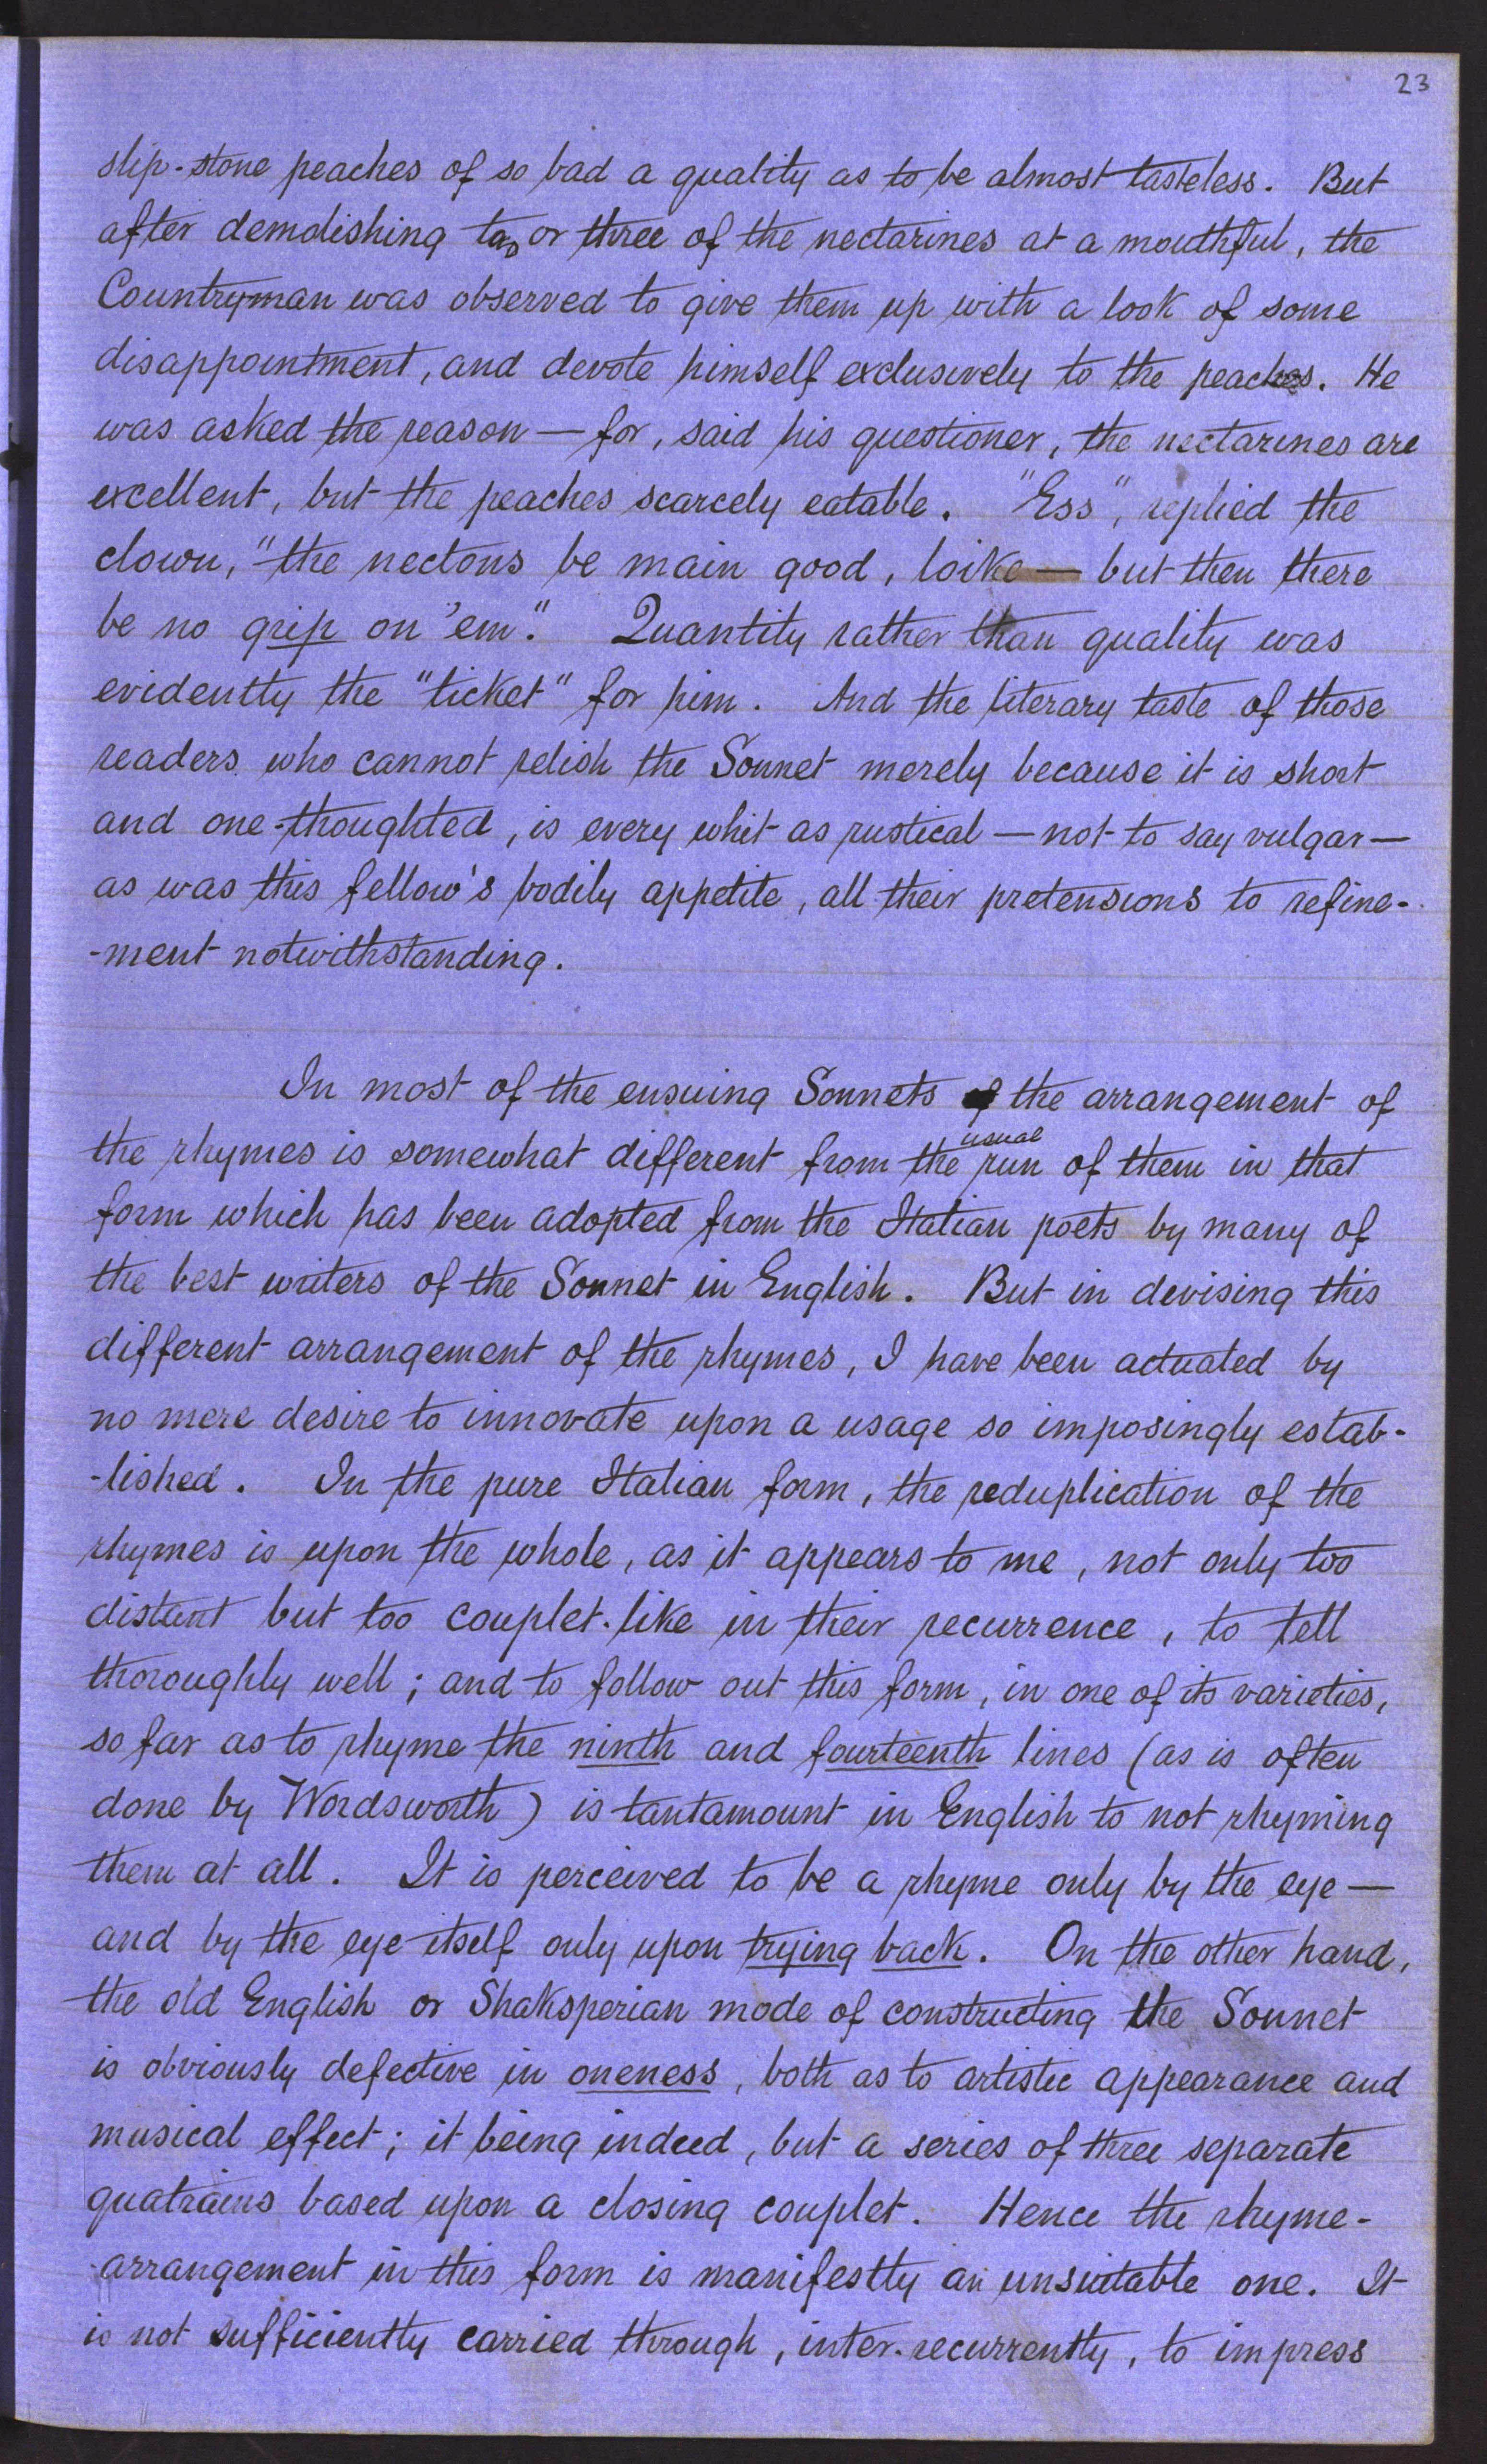 23
slip-stone peaches of so bad a quality as to be almost tasteless. But
after demolishing two or three of the nectarines at a mouthful, the
Countryman was observed to give them up with a look of some
disappointment, and devote himself exclusively to the peaches. He
was asked the reason — for, said his questioner, the nectarines are
excellent, but the peaches scarcely eatable. "Ess", replied the
clown, "the nectons be main good, loike — but then there
be no grip on 'em." Quantity rather than quality was
evidently the "ticket" for him. And the literary taste of those
readers who cannot relish the Sonnet merely because it is short
and one-thoughted, is every whit as rustical — not to say vulgar —
as was this fellow's bodily appetite, all their pretensions to refine-
-ment notwithstanding.
In most of the ensuing Sonnets the arrangement of
the rhymes is somewhat different from the usual run of them in that
form which has been adopted from the Italian poets by many of
the best writers of the Sonnet in English. But in devising this
different arrangement of the rhymes, I have been actuated by
no mere desire to innovate upon a usage so imposingly estab-
-lished. In the pure Italian form, the reduplication of the
rhymes is upon the whole, as it appears to me, not only too
distant but too couplet-like in their recurrence, to tell
thoroughly well; and to follow out this form, in one of its varieties,
so far as to rhyme the ninth and fourteenth lines (as is often
done by Wordsworth) is tantamount in English to not rhyming
them at all. It is perceived to be a rhyme only by the eye —
and by the eye itself only upon trying back. On the other hand,
the old English or Shaksperian mode of constructing the Sonnet
is obviously defective in oneness, both as to artistic appearance and
musical effect; it being indeed, but a series of three separate
quatrains based upon a closing couplet. Hence the rhyme-
-arrangement in this form is manifestly an unsuitable one. It
is not sufficiently carried through, inter-recurrently, to impress